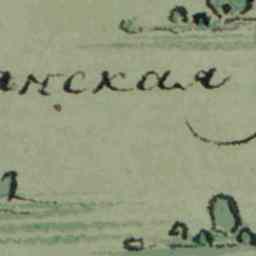 анская